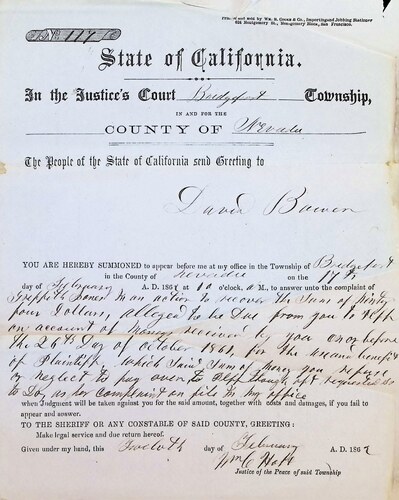 Printed and sold by Wm. B. Cooke & Co., Importing and Jobbing Stationers
624 Montgomery St., Montgomery Block, San Francisco.
No 117
State of California.
In the Justice's Court Bridgeport Township,
IN AND FOR THE
COUNTY OF Nevada
The People of the State of California send Greeting to
David Bowen
YOU ARE HEREBY SUMMONED to appear before me at my office in the Township of Bridgeport
in the County of Nevada on the 17th
day of February A. D. 1862 at 10 o'clock, A M., to answer unto the complaint of
Griffith Jones in an action to recover the Sum of Ninety
four Dollars, alleged to be Due from you to Plff
on account of Money received by you on or before
the 26th Day of October 1861, for the use and benefit
of Plaintiff, which Said Sum of Money you refuse
or neglect to pay over to Plff though oft requested so
to Do, as per Complaint on file in my office
when Judgment will be taken against you for the said amount, together with costs and damages, if you fail to
appear and answer.
TO THE SHERIFF OR ANY CONSTABLE OF SAID COUNTY, GREETING:
Make legal service and due return hereof.
Given under my hand, this Twelvth day of February A. D. 1862
Wm C Holt
Justice of the Peace of said Township